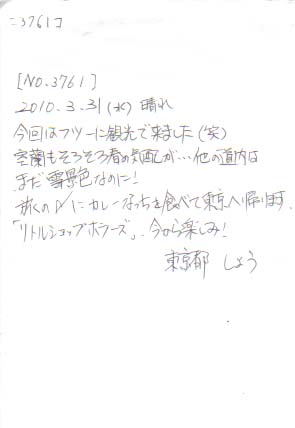 [NO.3761]
2010.3.31(水) 晴れ
今回はフツーに観光で来ました(笑)
室蘭もそろそろ春の気配が…他の道内は
まだ雪景色なのに!
旅の〆にカレーなっちを食べて東京へ帰ります
「リトルショップホラーズ」、今から楽しみ!
東京都 しょう